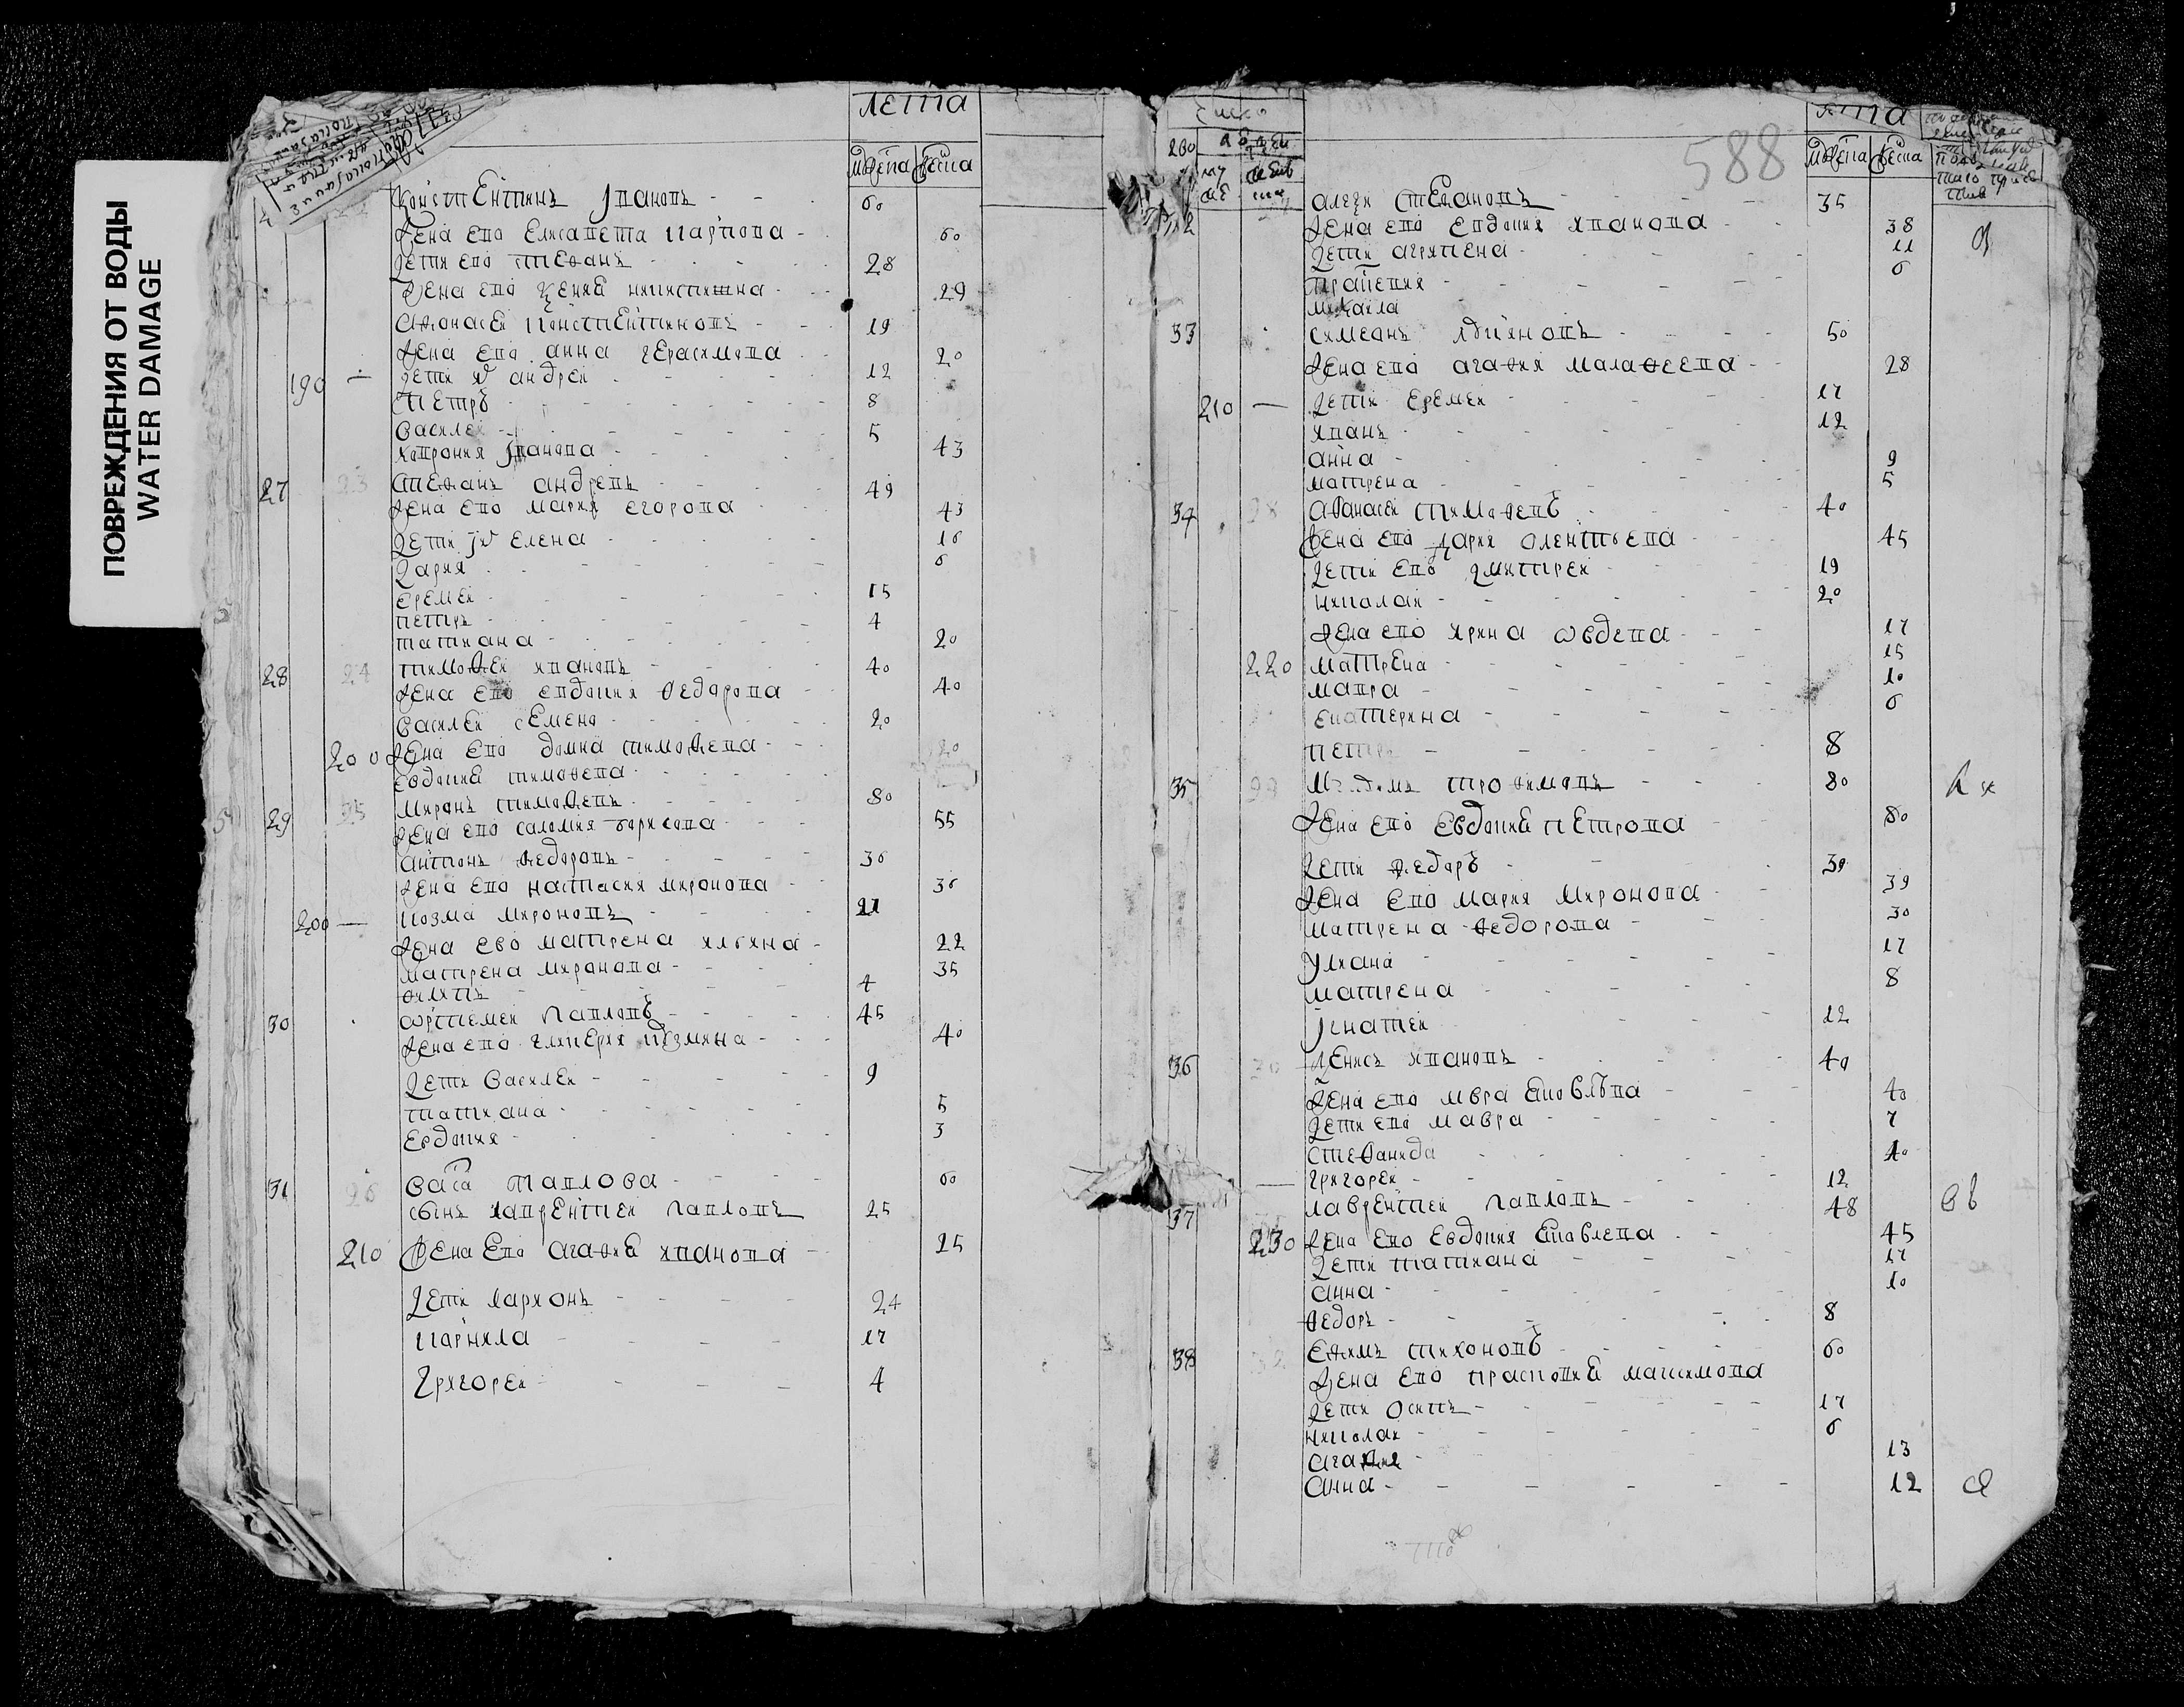 ПОВРЕЖДЕНИЯ ОТ ВОДЫ
WATER DAMAGE
лета
мужеска женска
Констентинъ Iвановъ - - 60
Жена ево Елисавета карпова - 60
Дети ево степанъ - - 28
Жена ево ксения никитишна - 29
Афонасеи констентиновъ - - 19
Жена ево анна герасимова - 20
190 — Дети их андреи - - 12
Петръ - - 8
Василеи - - 5
хаврония Iванова - 43
27 23 степанъ андревъ - - 49
Жена ево мария егорова - 43
Дети их елена - - 16
Дария - - 6
еремеи - - 15
петръ - - 4
татиана - - 20
28 24 тимофеи ивановъ - - 40
Жена ево евдокия федорова - 40
Василеи семено - - 20
200 Жена ево домна тимофева - 20
Евдокия тимофева - -
5 29 25 миронъ тимофевъ - - 80
Жена ево саломия борисова - 55
антонъ федоровъ - - 36
Жена ево настасия миронова - 36
200 — козма мироновъ - - 21
Жена ево матрена ильина - 22
матрена миронова - - 35
филипъ - - 4
30 артемеи павловъ - - 45
Жена ево гликерия козмина - 40
Дети Василеи - - 9
татиана - - 5
Евдокия - - 3
31 26 Васа павлова - - 60
сынъ лаврентеи павловъ 25
210 Жена Ево агафия иванова - 25
Дети ларионъ - - 24
карнила - - 17
Григореи - - 4
588
число
200
лета
мужеска женска
32 алеѯи степановъ - - 35
Жена ево евдокия иванова - 38
Дети агрипена - - 11
праскевия - - 6
михаила
33 симеонъ - - 50
Жена ево агафия малафеева - 28
210 — Дети еремеи - - 17
иванъ - - 12
анна - - 9
матрена - - 5
34 28 афанасеи тимофевъ - - 40
Жена ево дария - - 45
Дети ево дмитреи - - 19
николаи - - 20
Жена ево ирина - - 17
220 матрена - - 15
мавра - - 10
екатерина - - 6
петръ - - 8
35 29 трофимовъ - - 80
Жена ево Евдокия петрова - 80
Дети федоръ - - 39
Жена ево мария миронова - 39
матрена федорова - 30
улиана - - 17
матрена - - 8
Iгнатеи - - 12
36 30 Денисъ ивановъ - - 40
Жена ево мвра - - 40
Дети ево мавра - - 7
стефанида - - 10
— григореи - - 12
37 лаврентеи павловъ - - 48
230 Жена ево Евдокия - - 45
Дети татиана - - 17
анна - - 10
федоръ - - 8
38 32 Ефимъ тихоновъ - - 60
Жена ево прасковия максимова
Дети осипъ - - 17
николаи - - 6
агафия - 13
анна - - 12